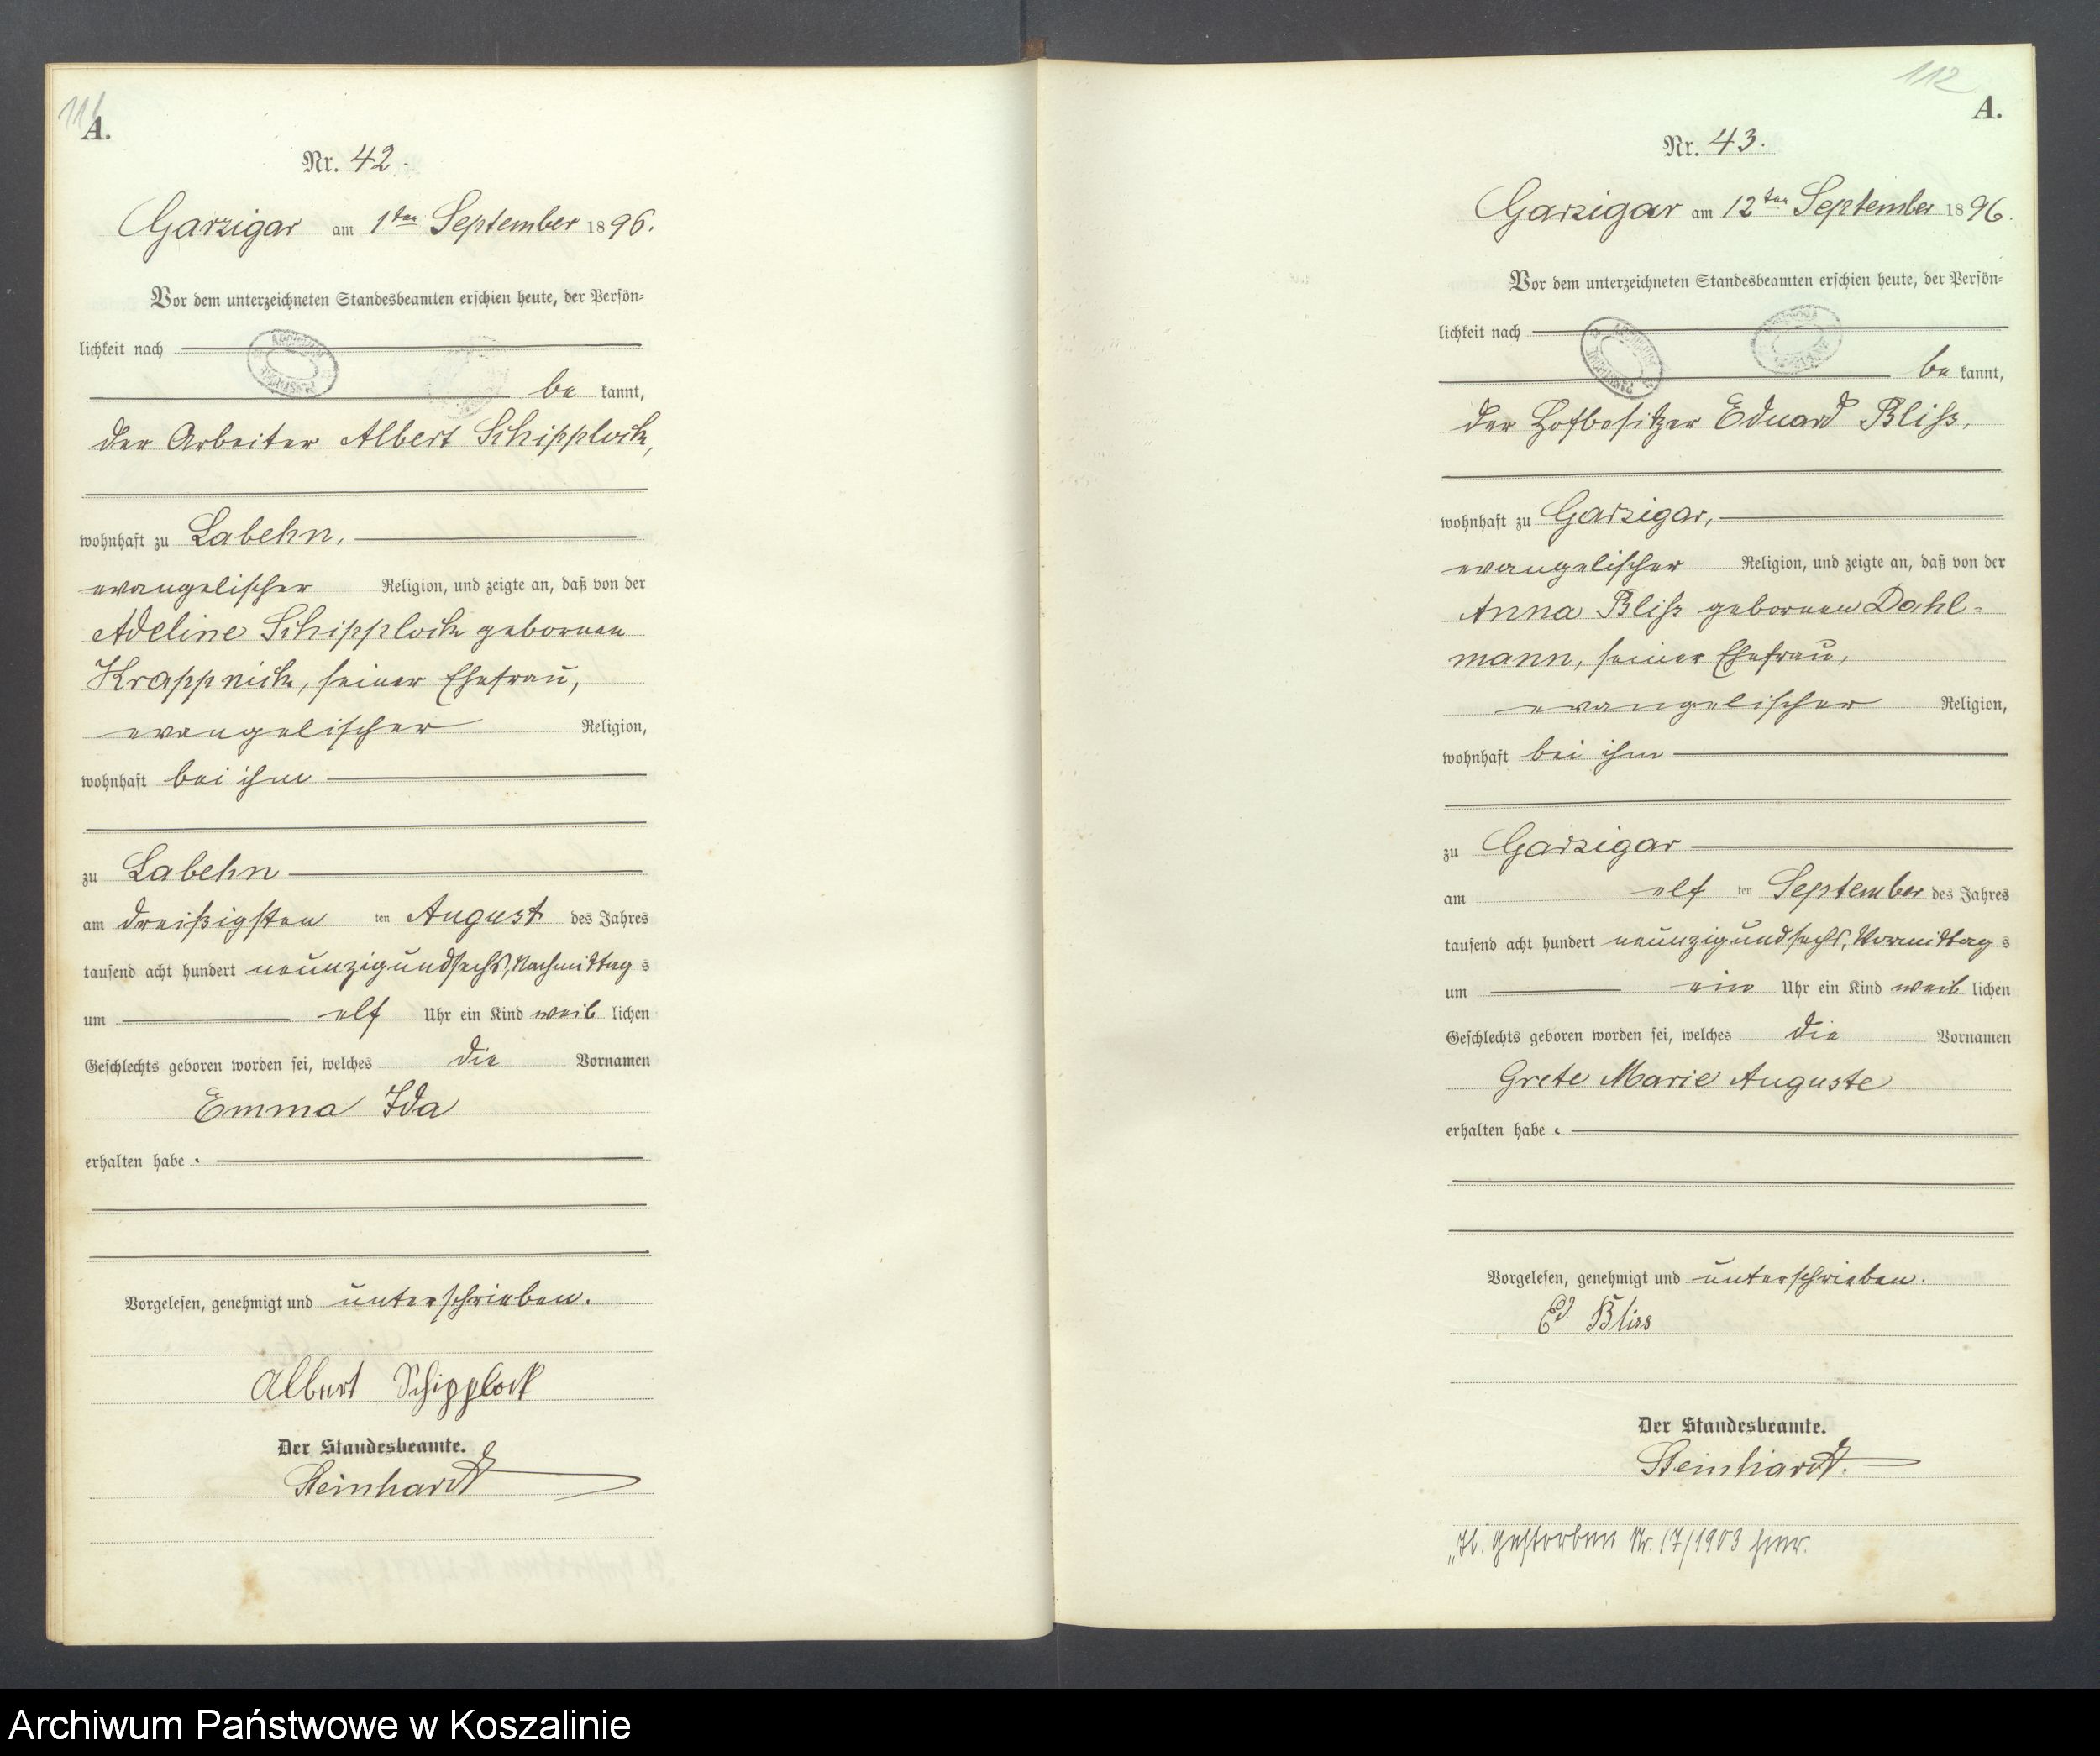 111
A.
Nr. 42.
Garzigar am 1ten September 1896.
Vor dem unterzeichneten Standesbeamten erschien heute, der Persön-
lichkeit nach
be kannt,
der Arbeiter Albert Schipplock,
wohnhaft zu Labehn,
evangelischer Religion, und zeigte an, daß von der
Adeline Schipplock geborenen
Krappnick, seiner Ehefrau,
evangelischer Religion,
wohnhaft bei ihm
zu Labehn
am dreißigsten ten August des Jahres
tausend acht hundert neunzigundsechs, Nachmittag s
um elf Uhr ein Kind weib lichen
Geschlechts geboren worden sei, welches die Vornamen
Emma Ida
erhalten habe.
Vorgelesen, genehmigt und unterschrieben.
Albert Schipplock
Der Standesbeamte.
Steinhardt
112
A.
Nr. 43.
Garzigar am 12ten September 1896.
Vor dem unterzeichneten Standesbeamten erschien heute, der Persön-
lichkeit nach
be kannt,
der Hofbesitzer Eduard Bliss,
wohnhaft zu Garzigar,
evangelischer Religion, und zeigte an, daß von der
Anna Bliss geborenen Dahl-
mann, seiner Ehefrau,
evangelischer Religion,
wohnhaft bei ihm
zu Garzigar
am elf ten September des Jahres
tausend acht hundert neunzigundsechs, Vormittag s
um ein Uhr ein Kind weib lichen
Geschlechts geboren worden sei, welches die Vornamen
Grete Marie Auguste
erhalten habe.
Vorgelesen, genehmigt und unterschrieben.
Ed. Bliss
Der Standesbeamte.
Steinhardt.
gestorben Nr. 17/1903 hier.
Archiwum Państwowe w Koszalinie